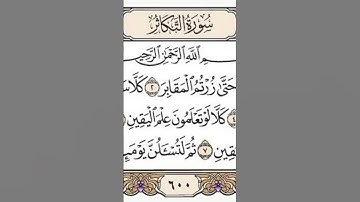 سُورَةُ التَّكَاثُرِ
ـمِ اللَّهِ الرَّحْمَٰنِ الرَّحِيمِ
حَتَّىٰ زُرْتُمُ الْمَقَابِرَ ٢ كَلَّا سَـ
٤ كَلَّا لَوْ تَعْلَمُونَ عِلْمَ الْيَقِينِ
ـقِينِ ٧ ثُمَّ لَتُسْأَلُنَّ يَوْمَئِـ
٦٠٠